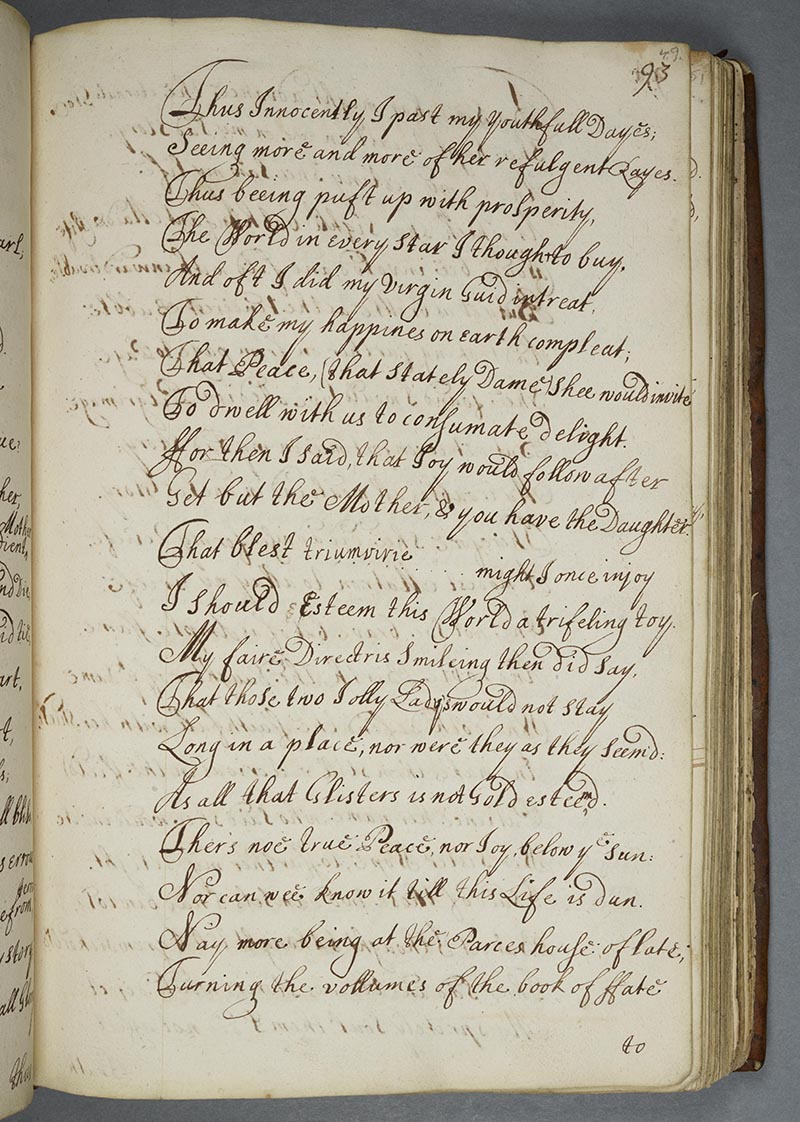 93
Thus Innocently I past my youthfull Dayes;
Seeing more and more of her refulgent Rayes.
Thus beeing puft up with prosperity,
The World in every star I thought to buy.
And oft I did my Virgin Guid intreat,
To make my happines on earth compleat;
That Peace, (that stately Dame) shee would invite
To dwell with us to consumate delight.
ffor then I said, that Joy would follow after
Get but the Mother, & you have the Daughter.
That blest triumvirie might I once injoy
I should Esteem this World a trifeling toy.
My faire Directris Smileing then did say,
That those two Jolly Ladys would not stay
Long in a place, nor were they as they seemd:
As all that Glisters is not Gold esteemd.
Thers noe true Peace, nor Joy, below ye sun:
Nor can wee know it till this Life is dun.
Nay more being at the Parces house of late;
Turning the vollumes of the book of ffate
to